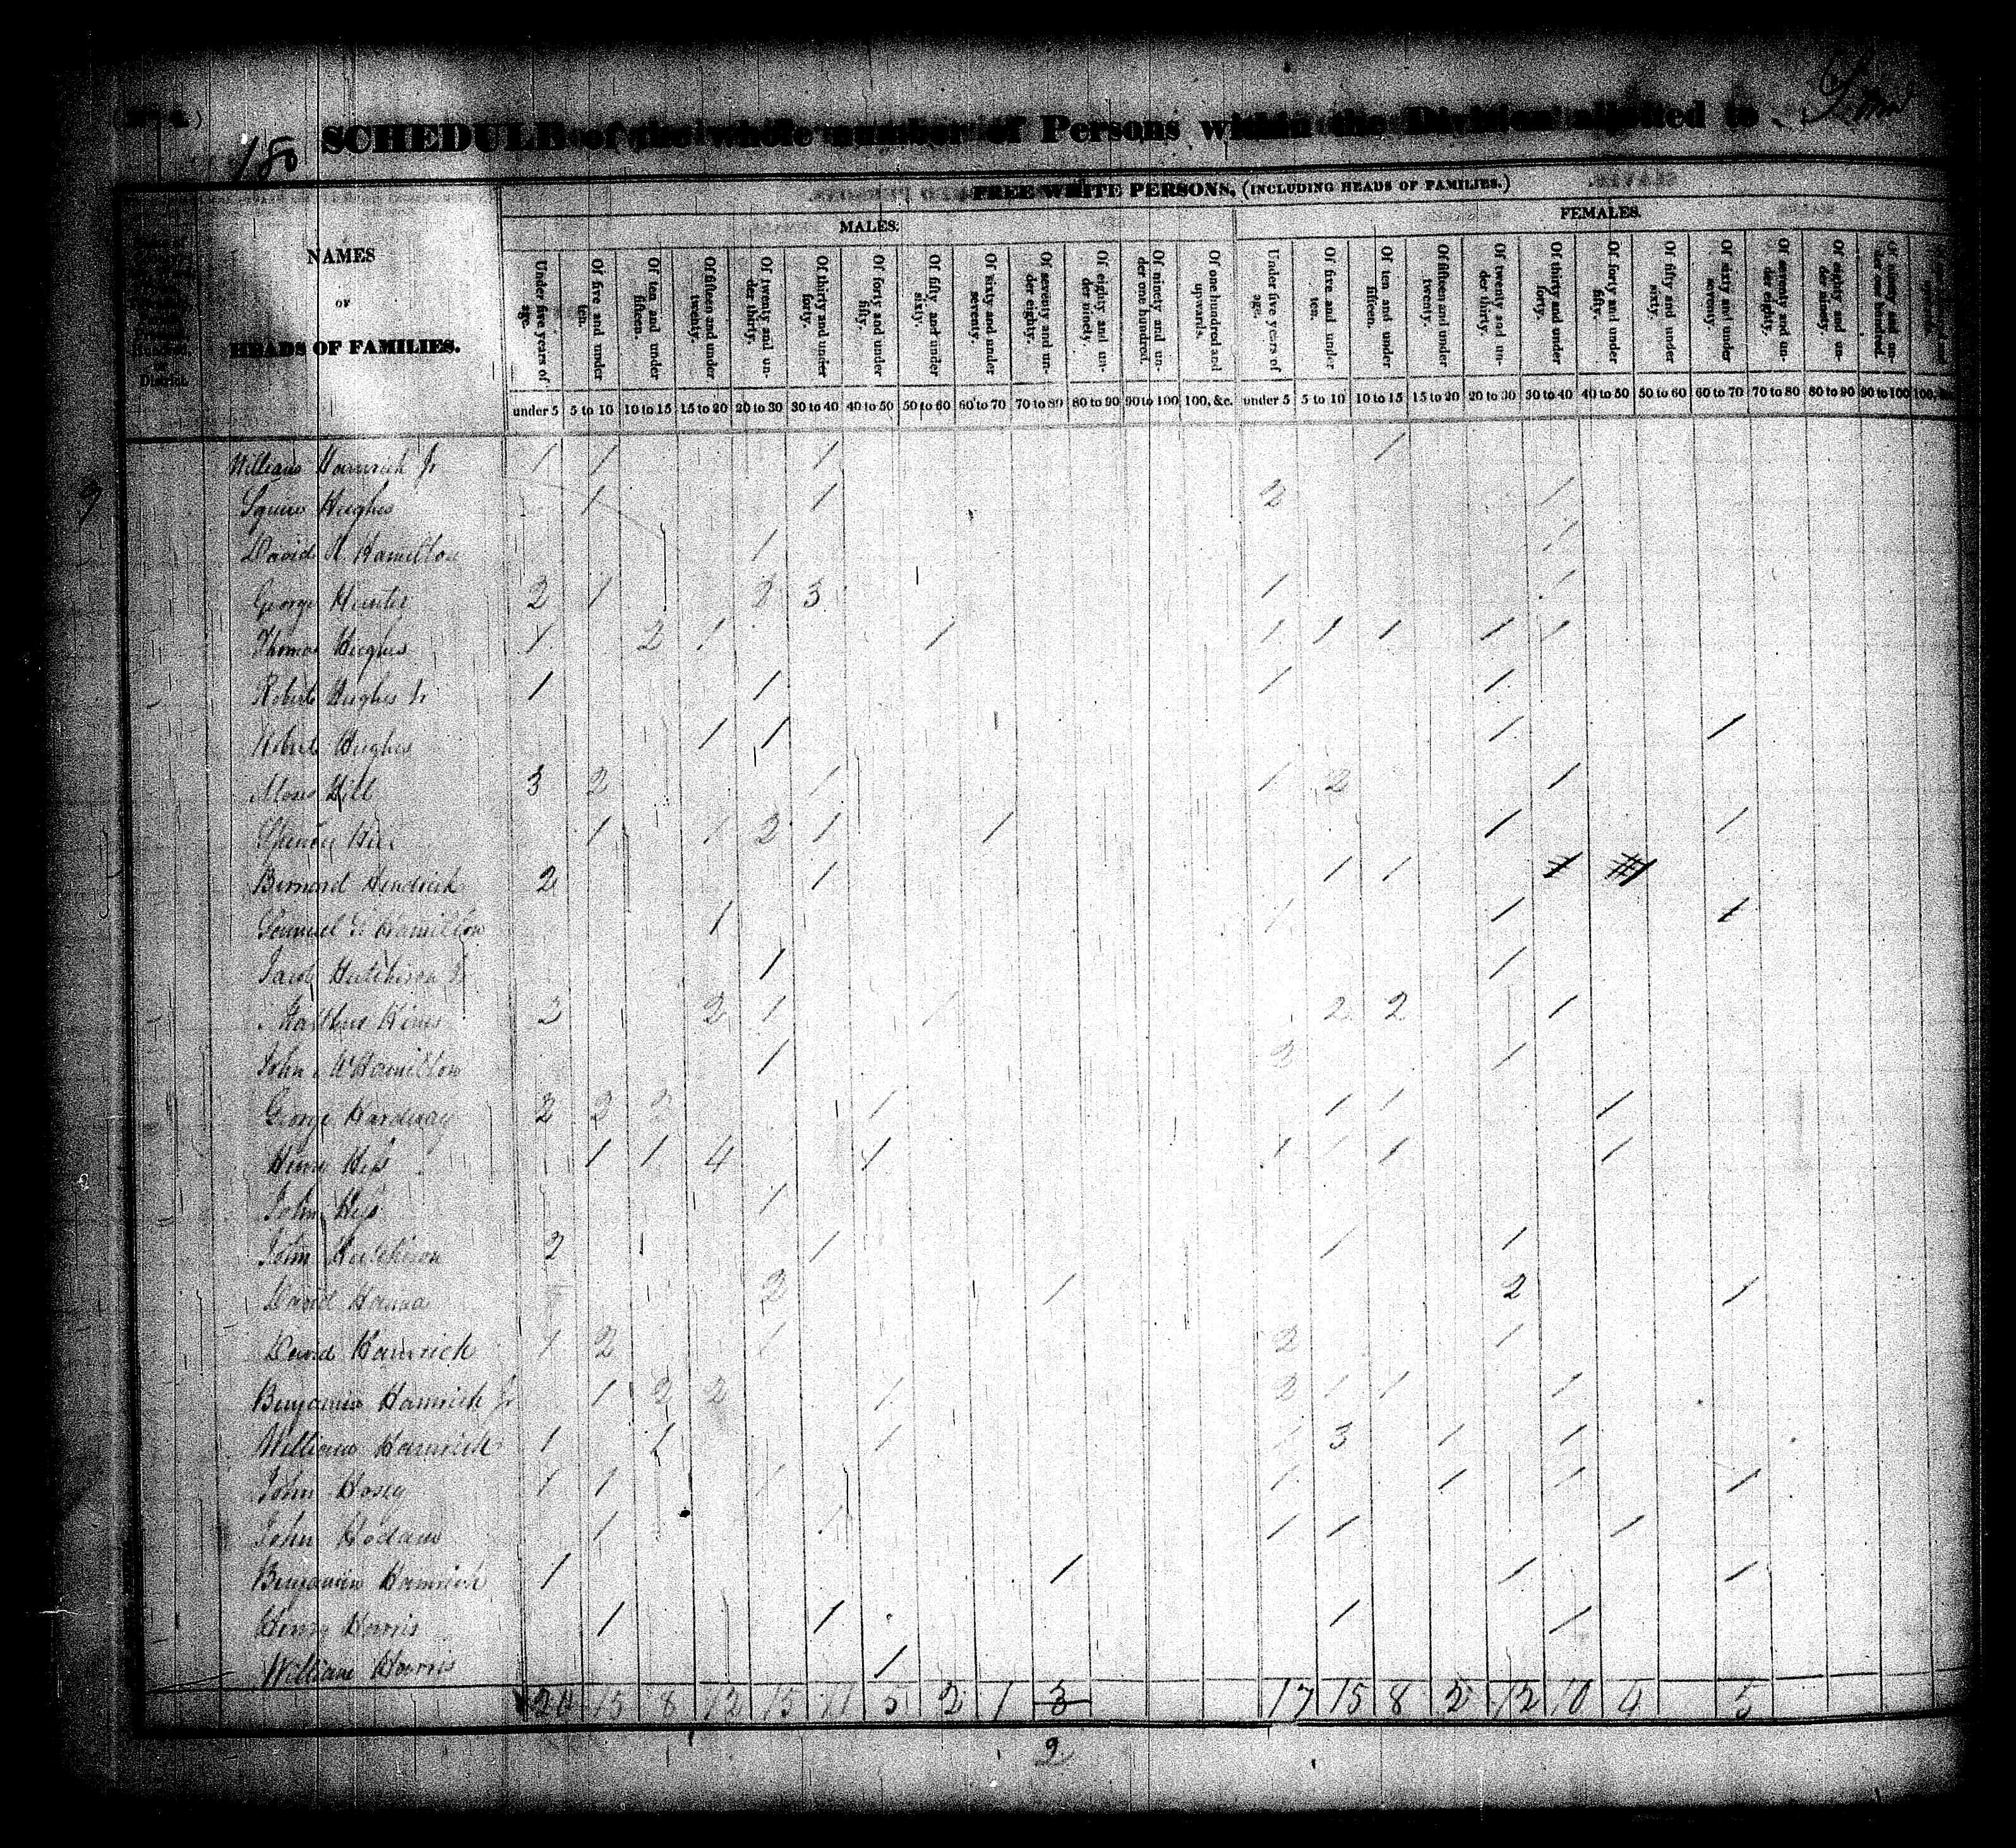 180 SCHEDULE of the whole number of Persons within the Division allotted to
FREE WHITE PERSONS, (INCLUDING HEADS OF FAMILIES.)
MALES. FEMALES.
NAMES
OF
HEADS OF FAMILIES.
District.
Under five years of age. Of five and under ten. Of ten and under fifteen. Of fifteen and under twenty. Of twenty and under thirty. Of thirty and under forty. Of forty and under fifty. Of fifty and under sixty. Of sixty and under seventy. Of seventy and under eighty. Of eighty and under ninety. Of ninety and under one hundred. Of one hundred and upwards. Under five years of age. Of five and under ten. Of ten and under fifteen. Of fifteen and under twenty. Of twenty and under thirty. Of thirty and under forty. Of forty and under fifty. Of fifty and under sixty. Of sixty and under seventy. Of seventy and under eighty. Of eighty and under ninety. Of ninety and under one hundred.
under 5 5 to 10 10 to 15 15 to 20 20 to 30 30 to 40 40 to 50 50 to 60 60 to 70 70 to 80 80 to 90 90 to 100 100, &c. under 5 5 to 10 10 to 15 15 to 20 20 to 30 30 to 40 40 to 50 50 to 60 60 to 70 70 to 80 80 to 90 90 to 100 100,
William Hamrick Jr 1 1 1 1
Squire Hughes 1 1 2 1
David Hamilton 1 1
George Hunter 2 1 2 3 1 1
Thomas Hughes 1 2 1 1 1 1 1 1 1
Robert Hughes Jr 1 1 1 1
Robert Hughes 1 1 1 1
Moses Hill 3 2 1 1 2 1
Spencer Hill 1 1 2 1 1 1 1
Bernard Hendrick 2 1 1 1 1
Samuel Hamilton 1 1 1 1
Jacob Hutchison Jr 1 1
2 2 1 1 2 2 1
John W Hamilton 1 3 1
George Hardway 2 2 2 1 1 1 1
Hess 1 1 4 1 1 1 1 1
John Hess 1
John Hutchison 2 1 1 1
David Hanna 2 1 2 1
David Hamrick 1 2 1 2 1
Benjamin Hamrick Jr 1 2 2 1 2 1 1 1
William Hamrick 1 1 1 1 3 1 1
John Hosey 1 1 1 1 1 1 1
John Hodam 1 1 1 1 1
Benjamin Hamrick 1 1 1 1
Henry Harris 1 1 1 1
William Harris 1
20 15 8 12 15 11 5 2 1 3 17 15 8 2 12 10 4 5
2